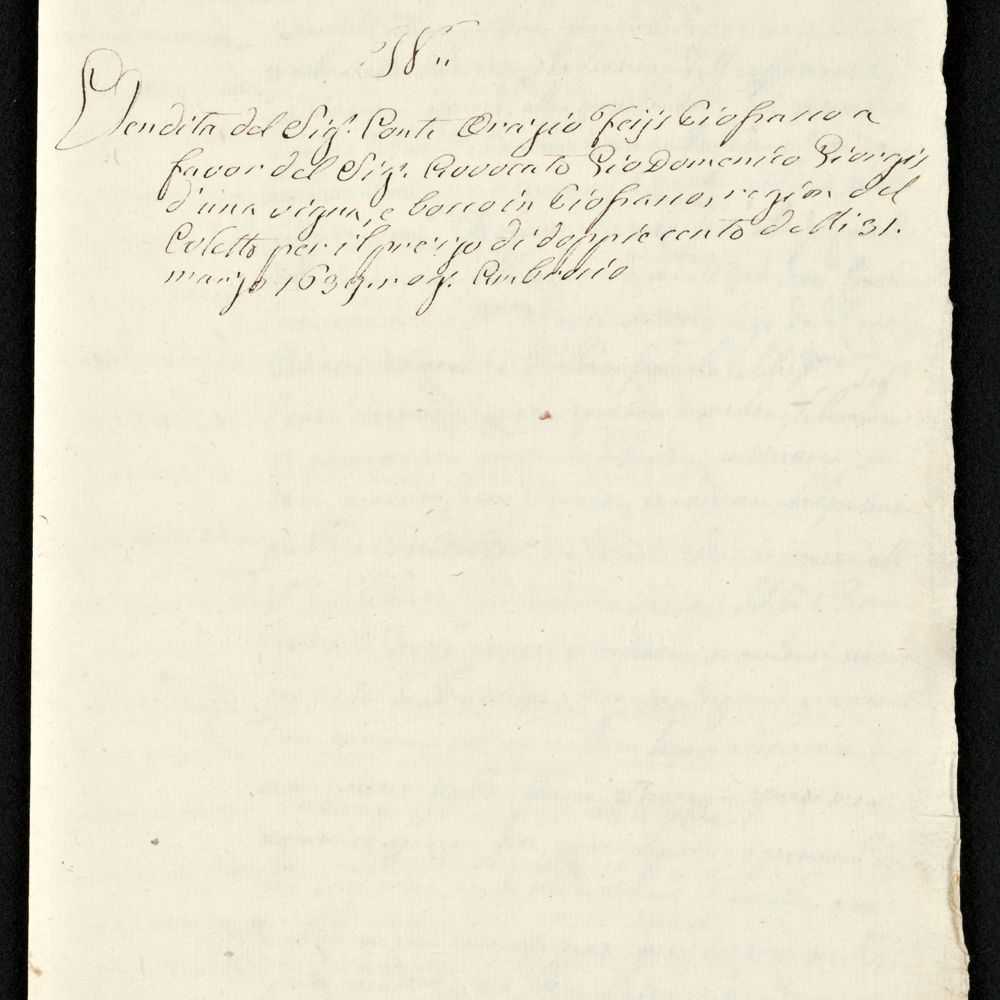 Vendita del Sig.r Conte Orazio Ciofrasco a
favor del Sig.r Avvocato Gio Domenico Giorgis
d'una vigna, e bosco in Ciofrasco, region del
Coletto per il prezzo di doppie cento delli 31.
marzo 1639. rog. Ambrosio